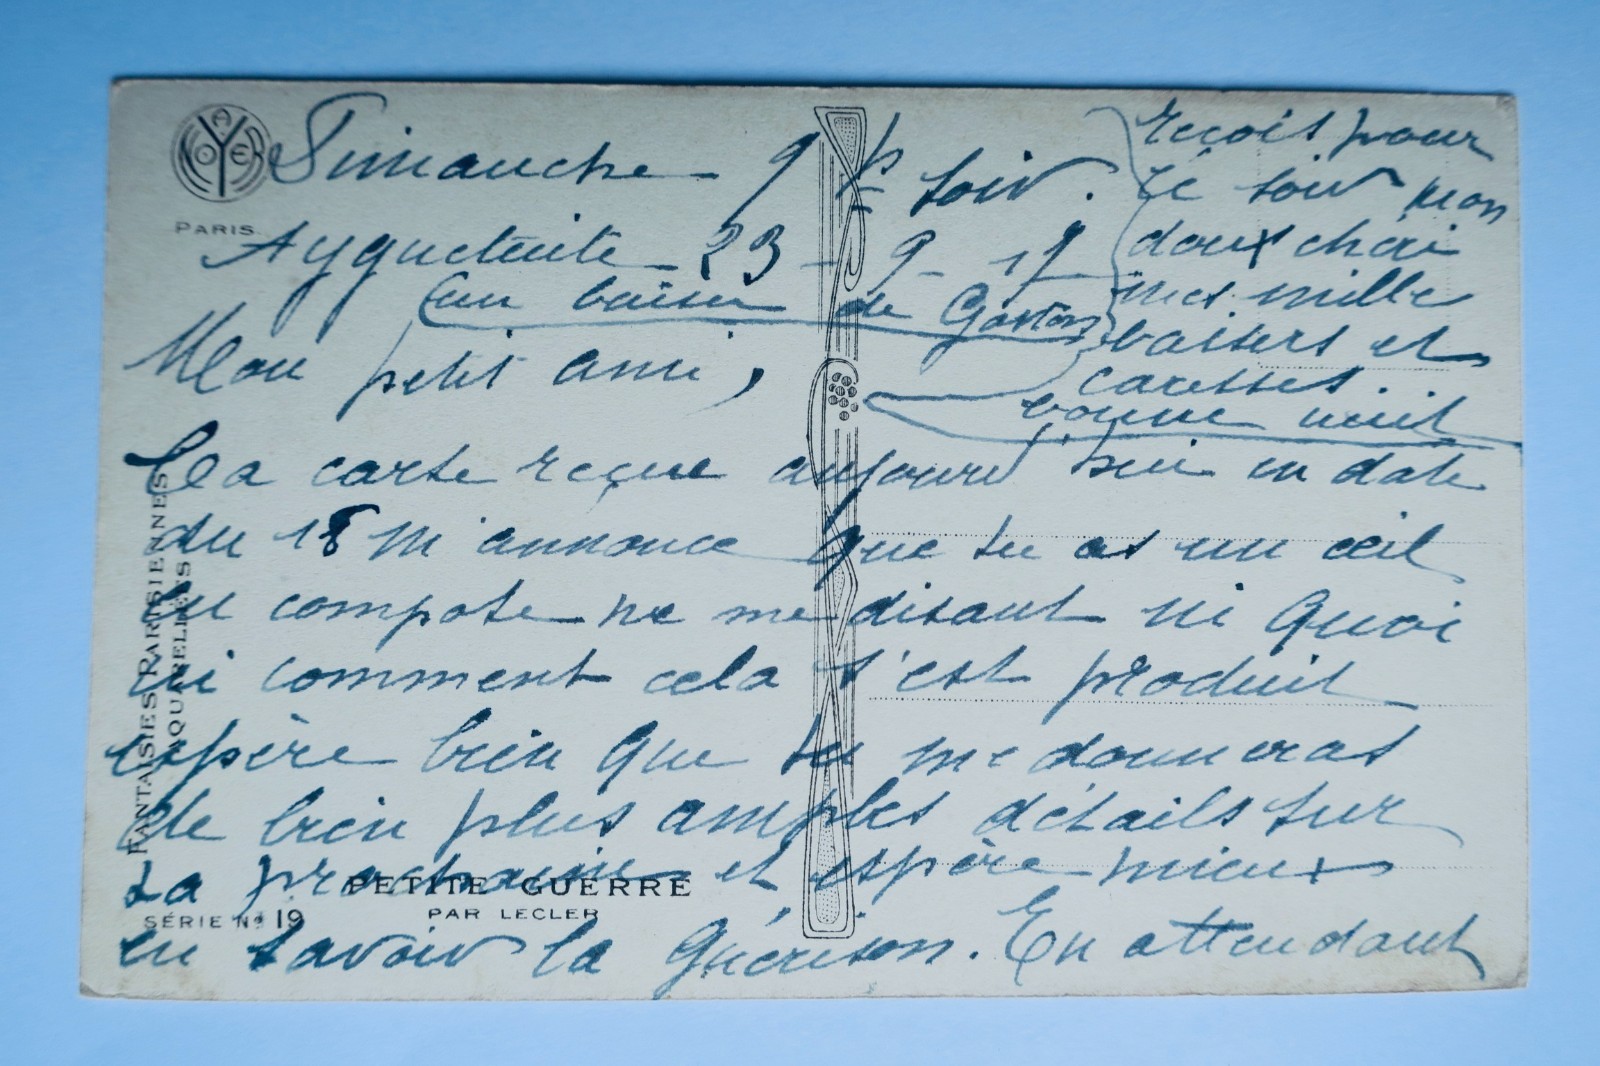 Dimanche - 9 h soir.
Ayguetinte 23 - 9 - 17
(un baiser de Gaston
Mon petit ami,
Ta carte reçue aujourd'hui en date
du 18 m'annonce que tu as un œil
en compote ne me disant ni quoi
ni comment cela s'est produit
espère bien que tu me donneras
de bien plus amples détails sur
la prochaine et espère mieux
en savoir la guérison. En attendant
reçois pour
ce soir mon
doux chéri
mes mille
baisers et
caresses.
bonne nuit
NOYER
PARIS
FANTAISIES PARISIENNES
AQUARELLES
PETITE GUERRE
PAR LECLER
SÉRIE No 19